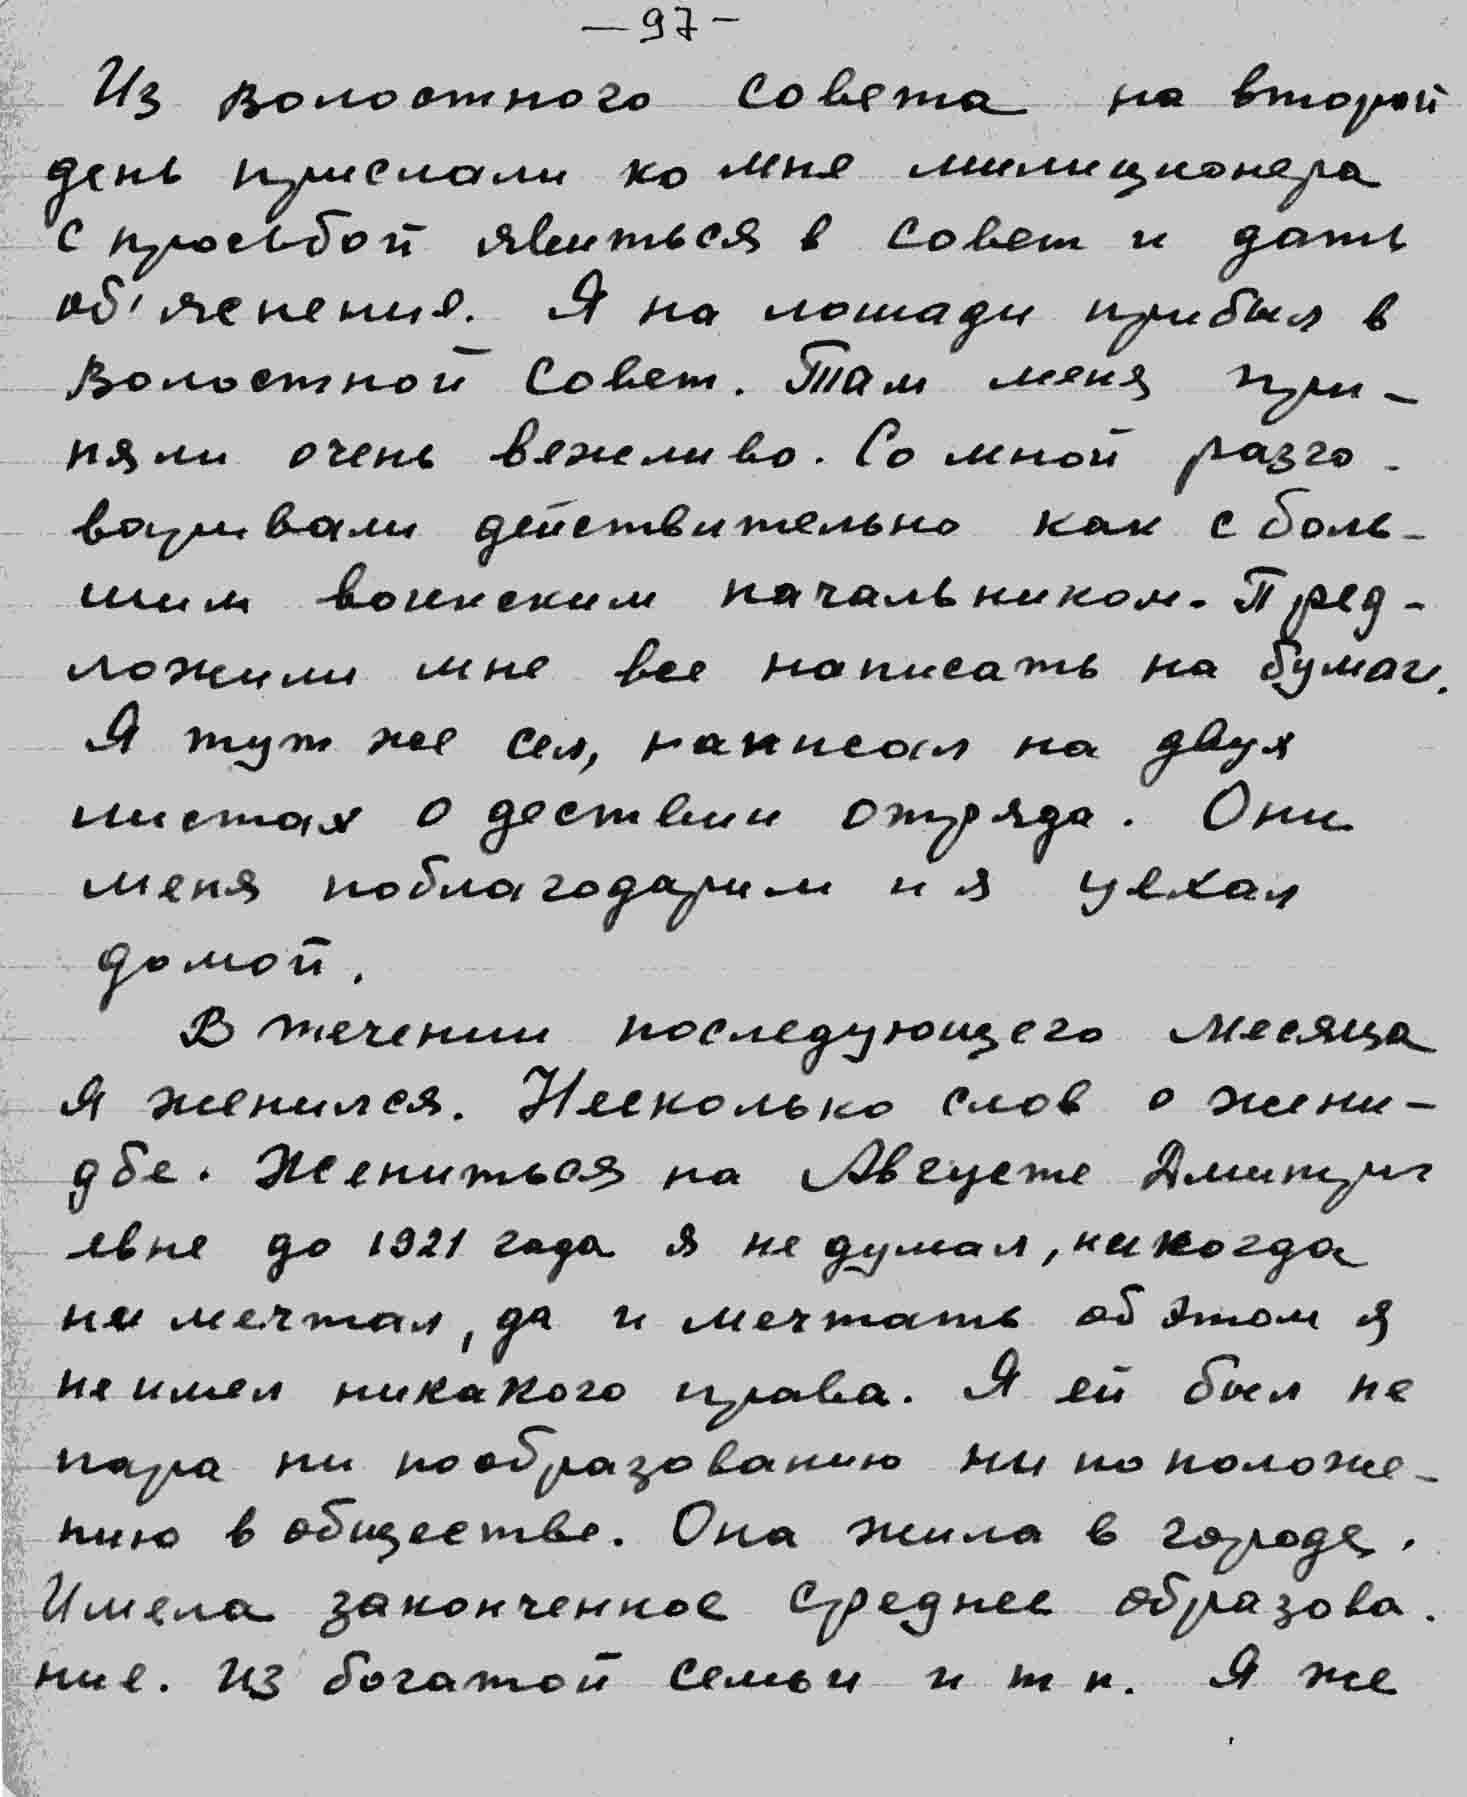 — 97 –
Из волостного совета на второй
день прислали ко мне милиционера
с просьбой явиться в совет и дать
об'яснения. Я на лошади прибыл в
волостной совет. Там меня при-
няли очень вежливо. Со мной разго-
варивали действительно как с боль-
шим воинским начальником. Пред-
ложили мне все написать на бумаги.
Я тут же сел, написал на двух
листах о дествии отряда. Они
меня поблагодарили и я уехал
домой.
В течении последующего месяца
я женился. Несколько слов о жени-
дбе. Жениться на Августе Дмитри
евне до 1921 года я не думал, никогда
не мечтал, да и мечтать об этом я
не имел никакого права. Я ей был не
пара ни по образованию ни по положе-
нию в обществе. Она жила в городе.
Имела законченное среднее образова-
ние. из богатой семьи и т п. Я же